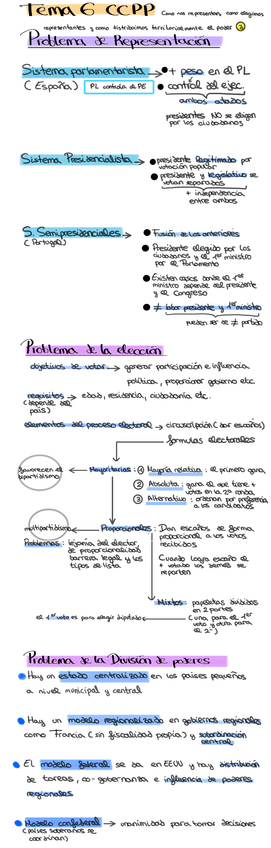 Tema 6 CCPP Como nos representan, como elegimos
representantes y como distribuimos territorialmente el poder
Problema de Representación
Sistema parlamentarista → + peso en el PL
(España) PL controla al PE control del ejec.
ambos atados
presidentes NO se eligen
por los ciudadanos
Sistema Presidencialista → presidente legitimado por
votación popular
presidente y legislativo se
votan separados
+ independencia
entre ambos
S. Semipresidenciales → Fusión de los anteriores
(Portugal)
Presidente elegido por los
ciudadanos y el 1er ministro
por el Parlamento
Existen casos donde el 1er
ministro depende del presidente
y el Congreso
≠ labor presidente y 1er ministro
pueden ser de ≠ partido
Problema de la elección
objetivos de votar → generar participación e influencia
política, proporcionar gobierno etc.
requisitos → edad, residencia, ciudadanía etc.
(depende del
país)
elementos del proceso electoral → circunscripción (dar escaños)
formulas electorales
favorecen el
bipartidismo
Mayoritarias: ① Mayoría relativa: el primero gana
② Absoluta: gana el que tiene +
votos en la 2ª ronda
③ Alternativo: ordenan por preferencia
a los candidatos
multipartidismo
Proporcionales: Dan escaños de forma
proporcional a los votos
recibidos
Problemas: lejanía del elector,
de proporcionalidad
barrera legal y los
tipos de lista
Cuando logra escaño el
+ votado los demás se
reparten
Mixtos: papeletas divididas
en 2 partes
(una para el 1er
voto y otra para
el 2º)
el 1er voto es para elegir diputado
Problema de la División de poderes
Hay un estado centralizado en los países pequeños
a nivel municipal y central
Hay un modelo regionalizado en gobiernos regionales
como Francia (sin fiscalidad propia) y subordinación
central
EL modelo federal se da en EEUU y hay distribución
de tareas, co-gobernanza e influencia de poderes
regionales
Modelo confederal → unanimidad para tomar decisiones
(países soberanos se
coordinan)